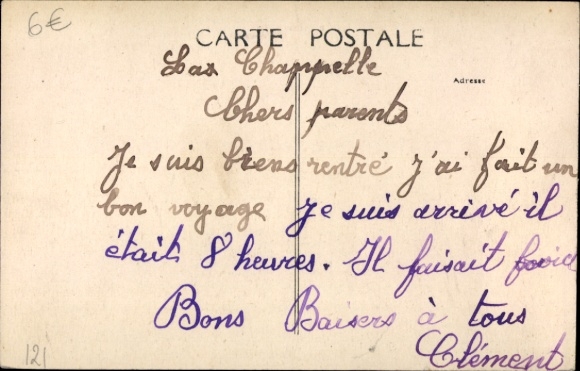 6€
CARTE POSTALE
Lax Chappelle
Adresse
Chers parents
Je suis biens rentré j'ai fait un
bon voyage Je suis arrivé il
était 8 heures. Il faisait froid
Bons Baisers à tous
Clément
121